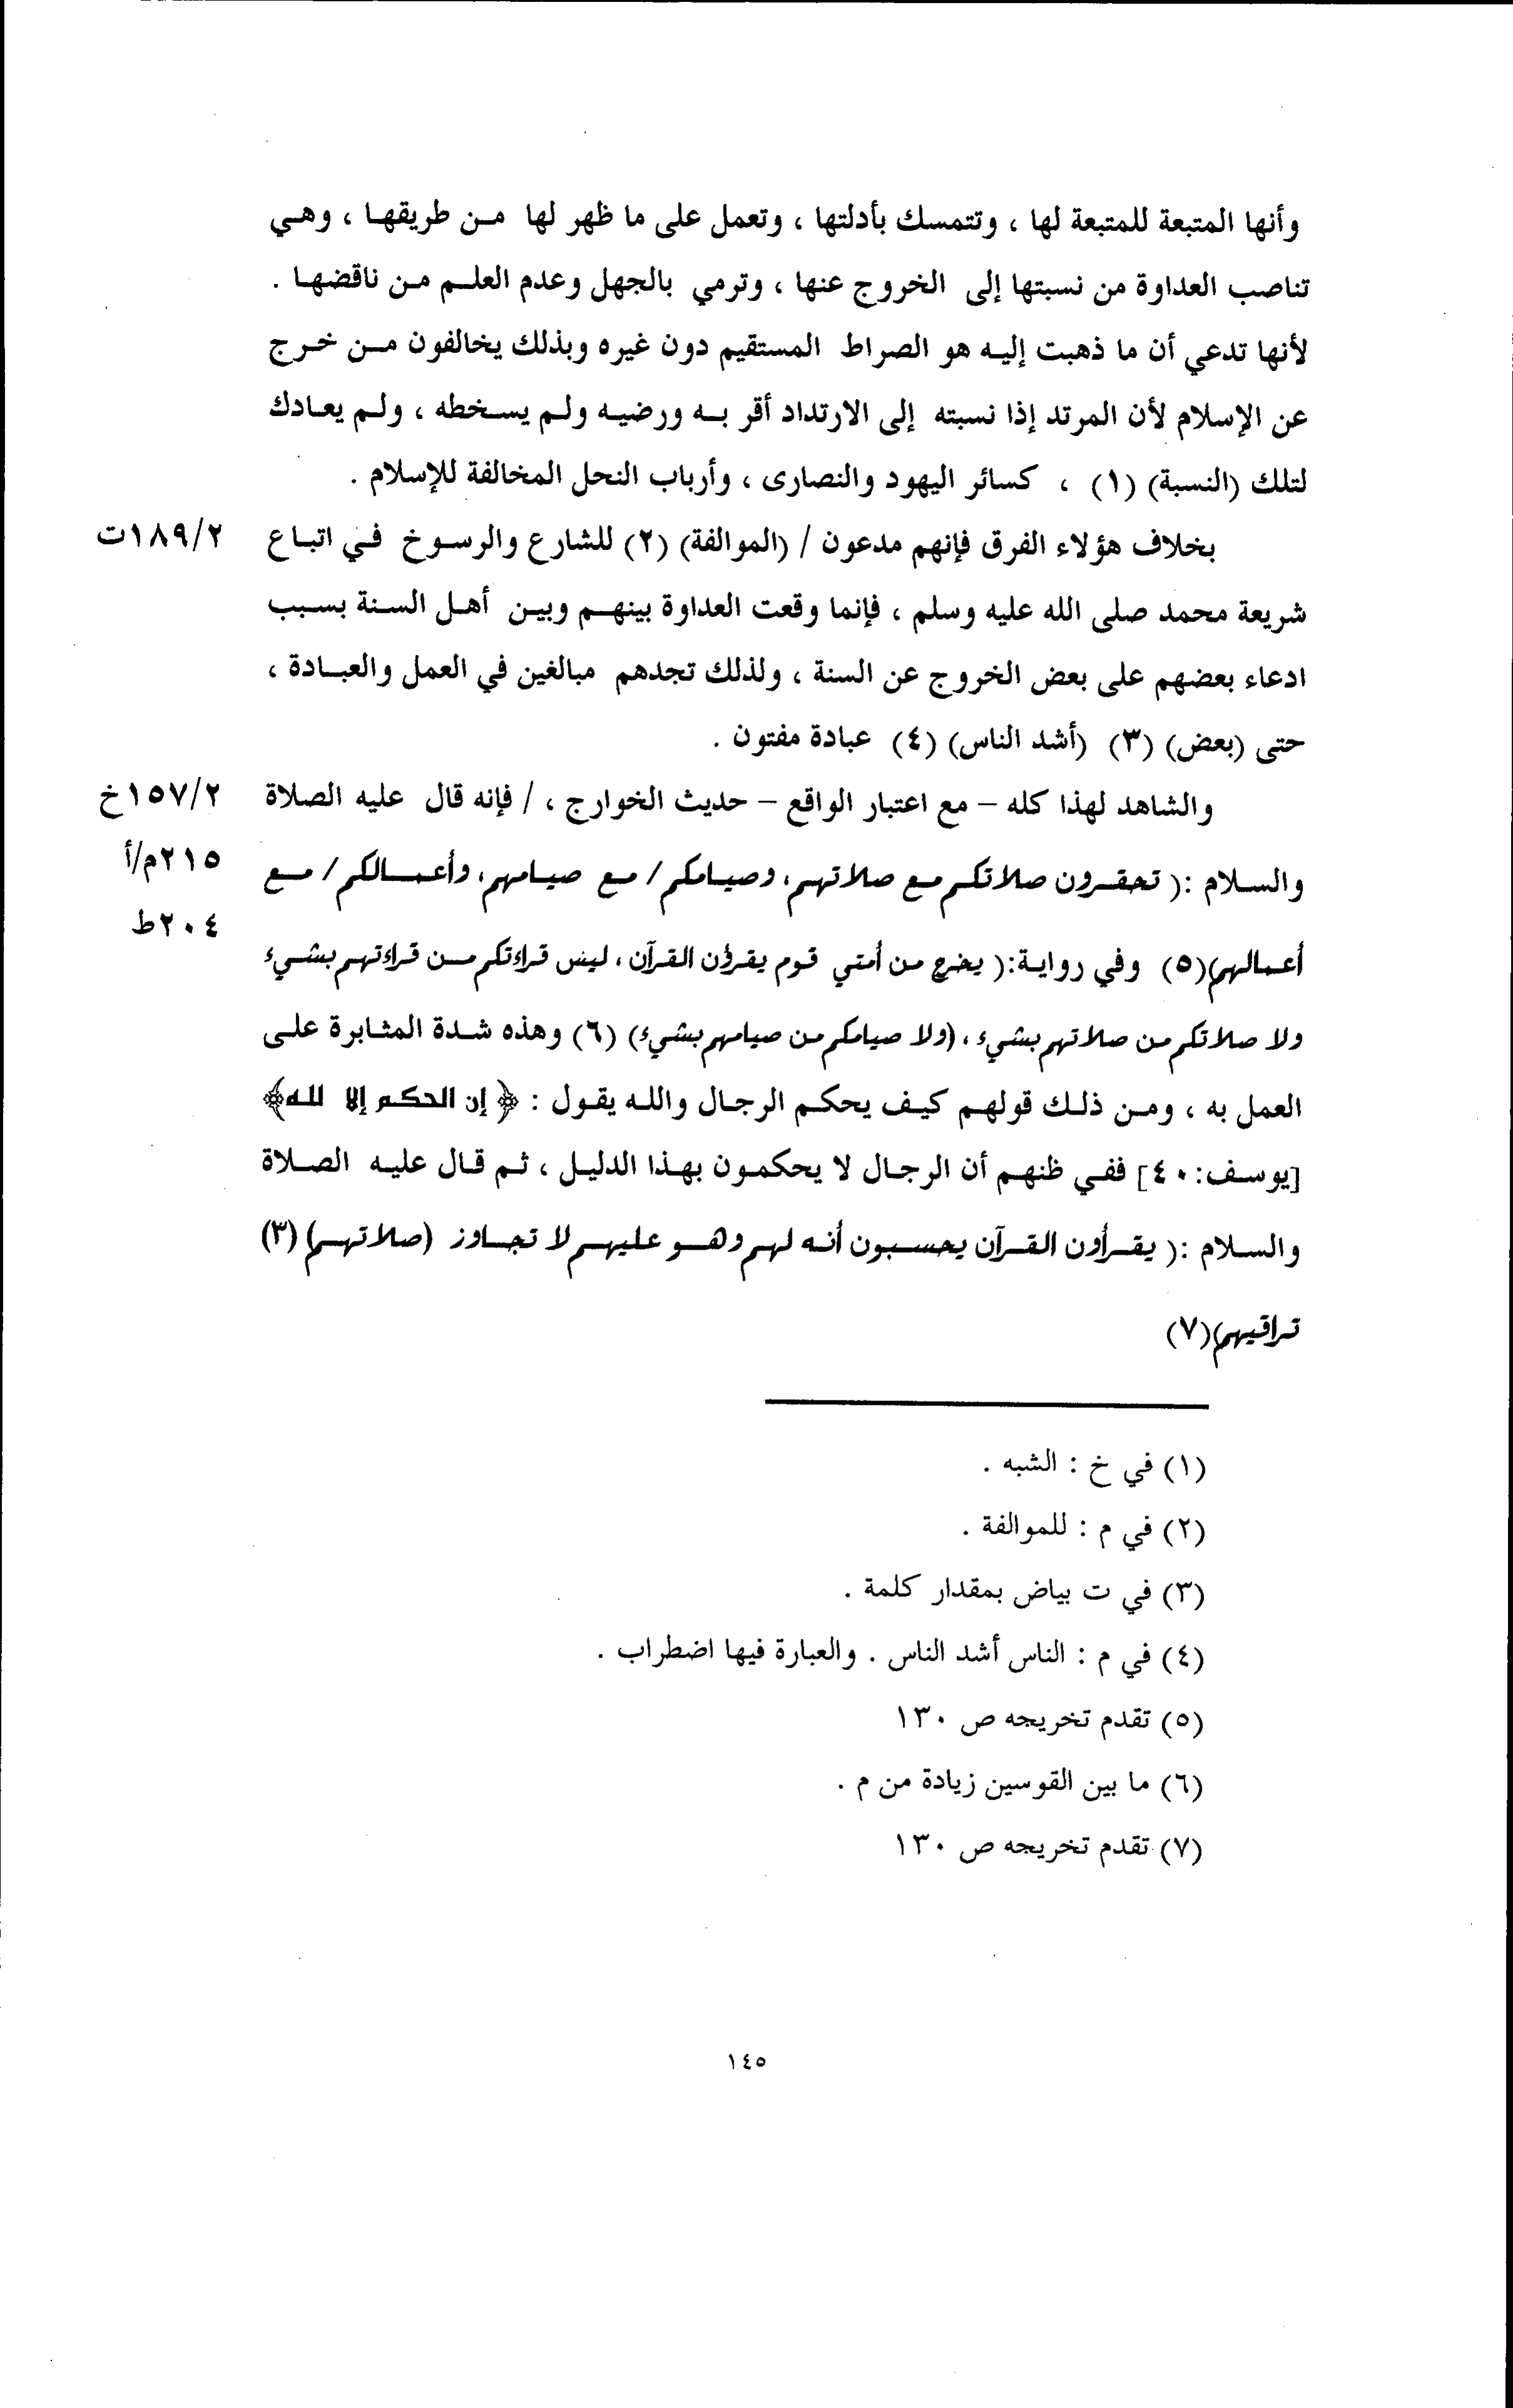 وأنها المتبعة للمتبعة لها ، وتتمسك بأدلتها ، وتعمل على ما ظهر لها من طريقها ، وهي
تناصب العداوة من نسبتها إلى الخروج عنها ، وترمي بالجهل وعدم العلم من ناقضها .
لأنها تدعي أن ما ذهبت إليه هو الصراط المستقيم دون غيره وبذلك يخالفون من خرج
عن الإسلام لأن المرتد إذا نسبته إلى الارتداد أقر به ورضيه ولم يسخطه ، ولم يعادك
لتلك (النسبة) (١) ، كسائر اليهود والنصارى ، وأرباب النحل المخالفة للإسلام .
بخلاف هؤلاء الفرق فإنهم مدعون / (الموالفة) (٢) للشارع والرسوخ في اتباع ١٨٩/٢ت
شريعة محمد صلى الله عليه وسلم ، فإنما وقعت العداوة بينهم وبين أهل السنة بسبب
ادعاء بعضهم على بعض الخروج عن السنة ، ولذلك تجدهم مبالغين في العمل والعبادة ،
حتى (بعض) (٣) (أشد الناس) (٤) عبادة مفتون .
والشاهد لهذا كله – مع اعتبار الواقع – حديث الخوارج ، / فإنه قال عليه الصلاة ١٥٧/٢خ
والسلام :( تحقرون صلاتكم مع صلاتهم، وصيامكم/ مع صيامهم، وأعمالكم/ مع ٢١٥م/أ
٢٠٤ط
أعمالهم)(٥) وفي رواية:( يخرج من أمتي قوم يقرؤن القرآن ، ليس قراءتكم من قراءتهم بشيء
ولا صلاتكم من صلاتهم بشيء ، (ولا صيامكم من صيامهم بشيء) (٦) وهذه شدة المثابرة على
العمل به ، ومن ذلك قولهم كيف يحكم الرجال والله يقول : ﴿ إن الحكم إلا لله﴾
[يوسف:٤٠] ففي ظنهم أن الرجال لا يحكمون بهذا الدليل ، ثم قال عليه الصلاة
والسلام :( يقرأون القرآن يحسبون أنه لهم وهو عليهم لا تجاوز (صلاتهم) (٣)
تراقيهم)(٧)
(١) في خ : الشبه .
(٢) في م : للموالفة .
(٣) في ت بياض بمقدار كلمة .
(٤) في م : الناس أشد الناس . والعبارة فيها اضطراب .
(٥) تقدم تخريجه ص ١٣٠
(٦) ما بين القوسين زيادة من م .
(٧) تقدم تخريجه ص ١٣٠
١٤٥